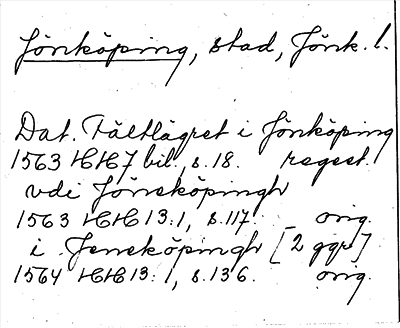 Jönköping, stad, Jönk. l.
Dat. Fältlägret i Jönköping
1563 HH 7 bil., s. 18. regest.
vdi Jöneköpingh
1563 HH 13:1, s. 117. orig.
i Jeneköpingh [2 ggr]
1564 HH 13:1, s. 136. orig.